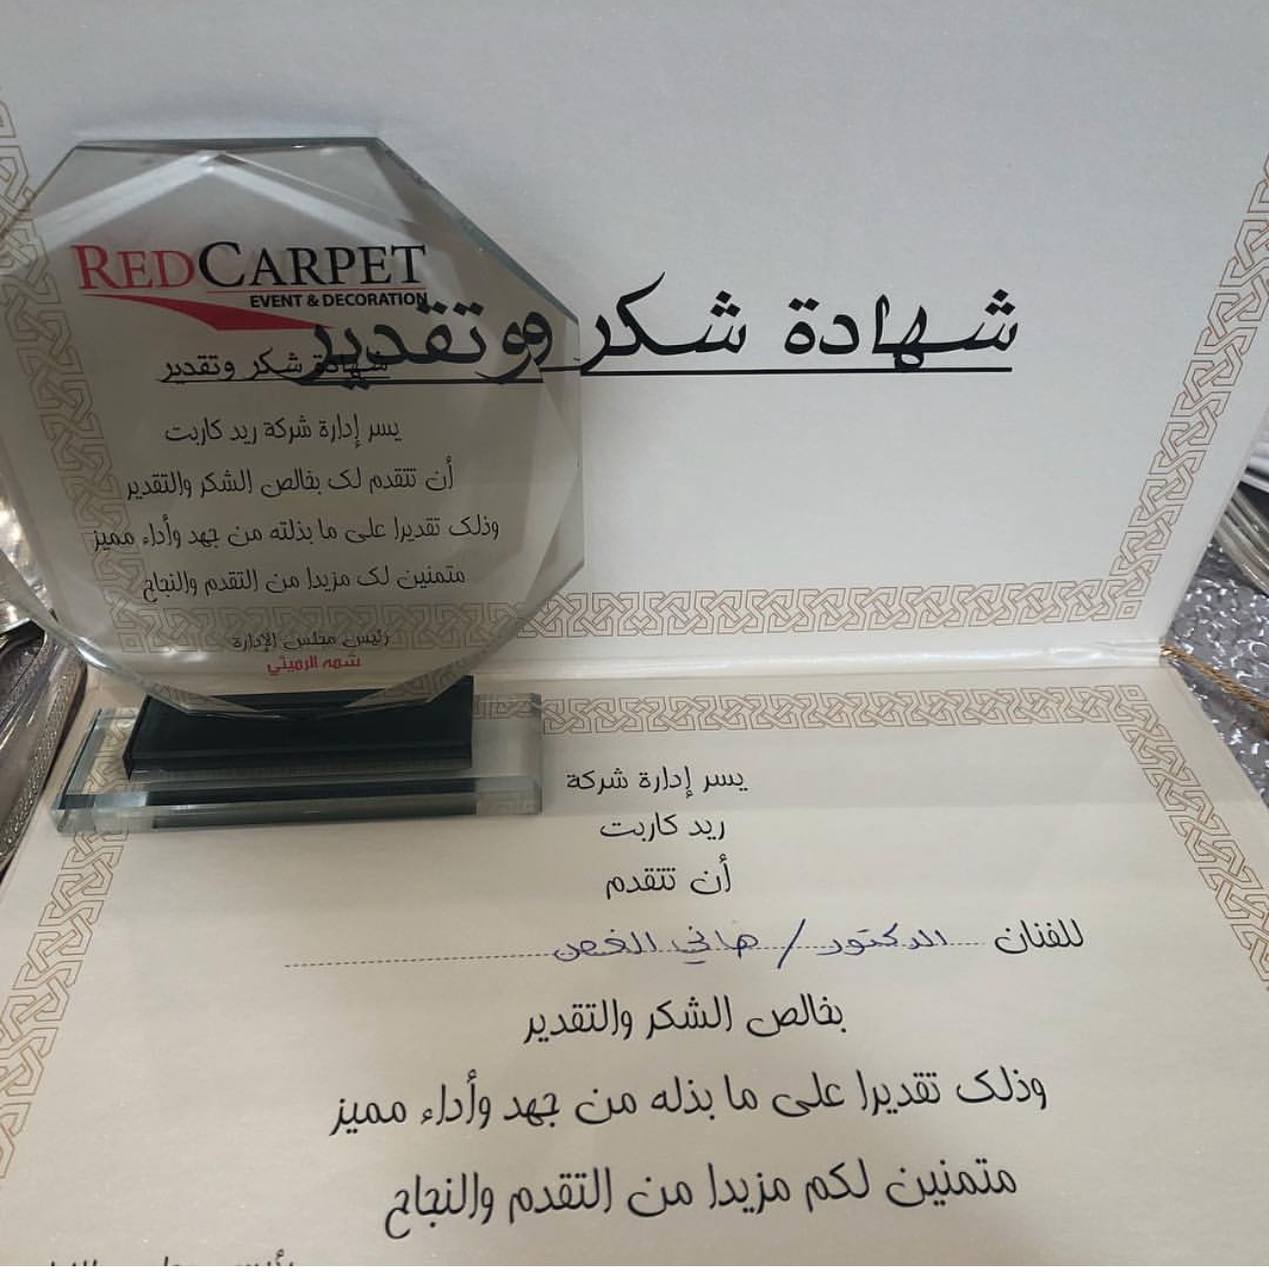 شهادة شكر ووتقدير
REDCARPET
EVENT & DECORATION
شهادة شكر وتقدير
يسر إدارة شركة ريد كاربت
أن تتقدم لك بخالص الشكر والتقدير
وذلك تقديرا على ما بذلته من جهد وأداء مميز
متمنين لك مزيدا من التقدم والنجاح
رئيس مجلس الإدارة
شمه الرميثي
يسر إدارة شركة
ريد كاربت
أن تتقدم
للفنان الدكتور / هاني الغصن
بخالص الشكر والتقدير
وذلك تقديرا على ما بذله من جهد وأداء مميز
متمنين لكم مزيدا من التقدم والنجاح